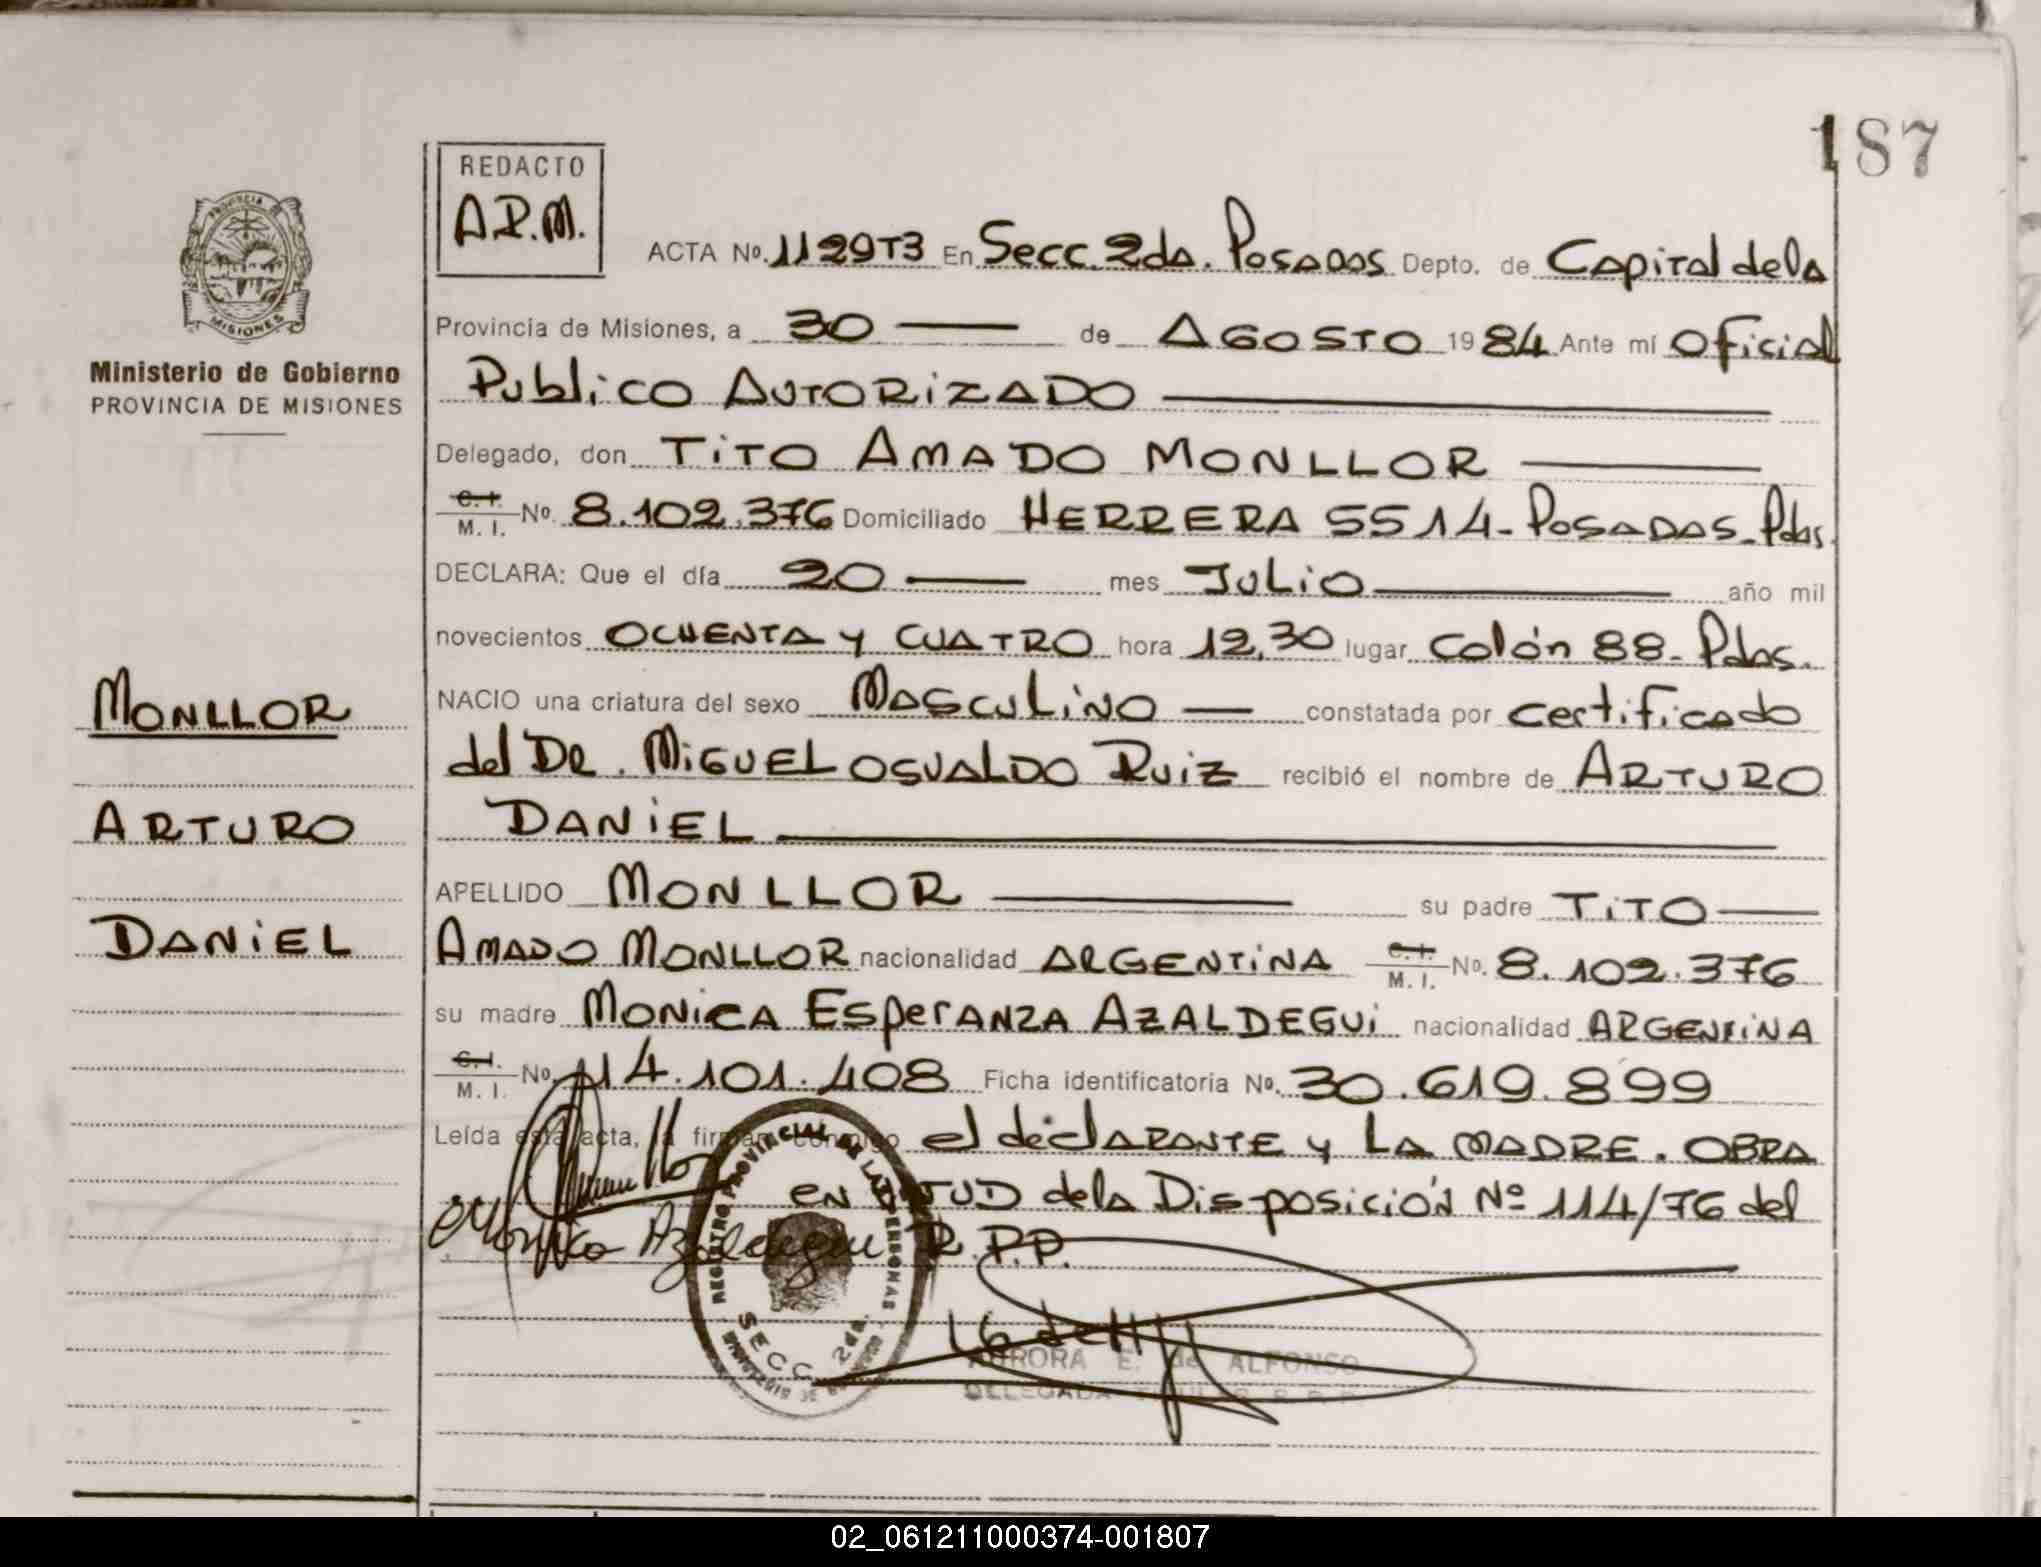 187
REDACTO
A.R.M.
PROVINCIA DE
MISIONES
Ministerio de Gobierno
PROVINCIA DE MISIONES
ACTA Nº. 1129T3 En Secc. 2da. Posadas Depto. de Capital de la
Provincia de Misiones, a 30 de AGOSTO 1984 Ante mí Oficial
Publico AUTORIZADO
Delegado, don TITO AMADO MONLLOR
C.I. M. I. Nº 8.102.376 Domiciliado HERRERA 5514- POSADAS- Pdas.
DECLARA: Que el día 20 mes JULIO año mil
novecientos OCHENTA Y CUATRO hora 12,30 lugar Colón 88- Pdas.
MONLLOR
NACIO una criatura del sexo MASCULINO constatada por certificado
del DR. MIGUEL OSVALDO RUIZ recibió el nombre de ARTURO
ARTURO
DANIEL
APELLIDO MONLLOR su padre TITO
DANIEL
AMADO MONLLOR nacionalidad ARGENTINA C.I. M. I. Nº. 8.102.376
su madre MONICA ESPERANZA AZALDEGUI nacionalidad ARGENTINA
C.I. M. I. Nº. 14.101.408 Ficha identificatoria Nº. 30.619.899
Leída esta acta, la firman conmigo el declarante y LA MADRE. OBRA
en VIRTUD de la Disposición Nº 114/76 del
Monica Azaldegui R.P.P.
REGISTRO PROVINCIAL DE LAS PERSONAS
SECC. 2da.
AURORA E. de ALFONSO
DELEGADA
02_061211000374-001807